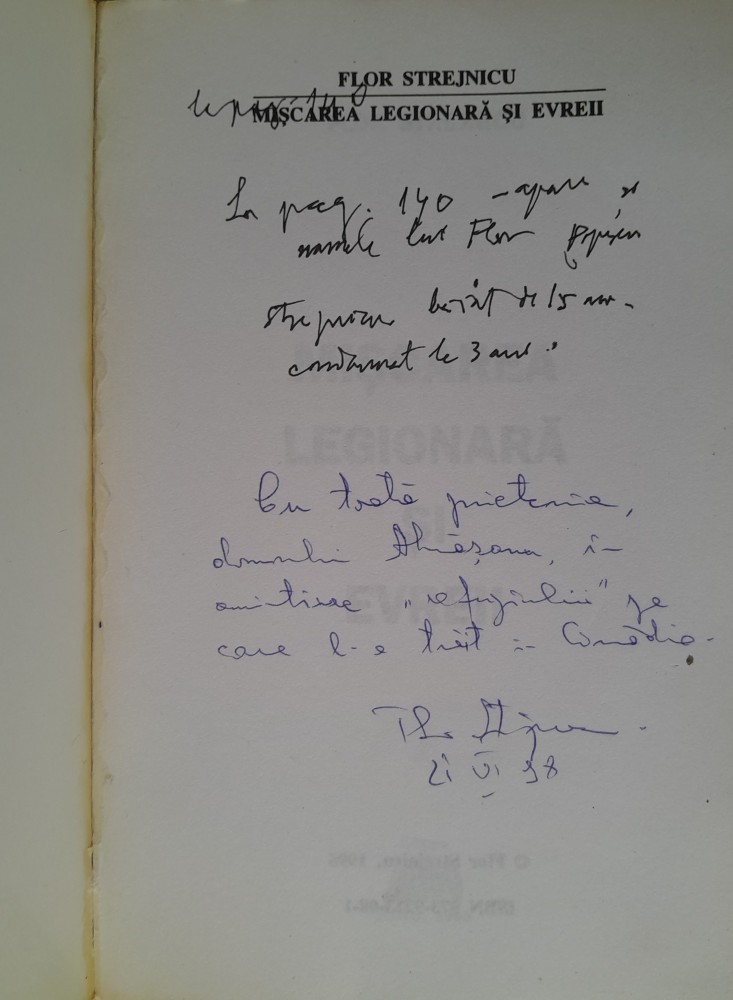 FLOR STREJNICU
la pag. 140
MIŞCAREA LEGIONARĂ ŞI EVREII
La pag. 140 - apare şi
numele lui Flor Popescu
Strejnicu băiat de 15 ani -
condamnat la 3 ani.
Cu toată prietenia,
domnului în
amintirea "refugiului" pe
care l-a trăit în Canada.
Flor Strejnicu
21 VI 98
MIŞCAREA
LEGIONARĂ
ŞI
EVREII
© Flor Strejnicu, 1996
ISBN